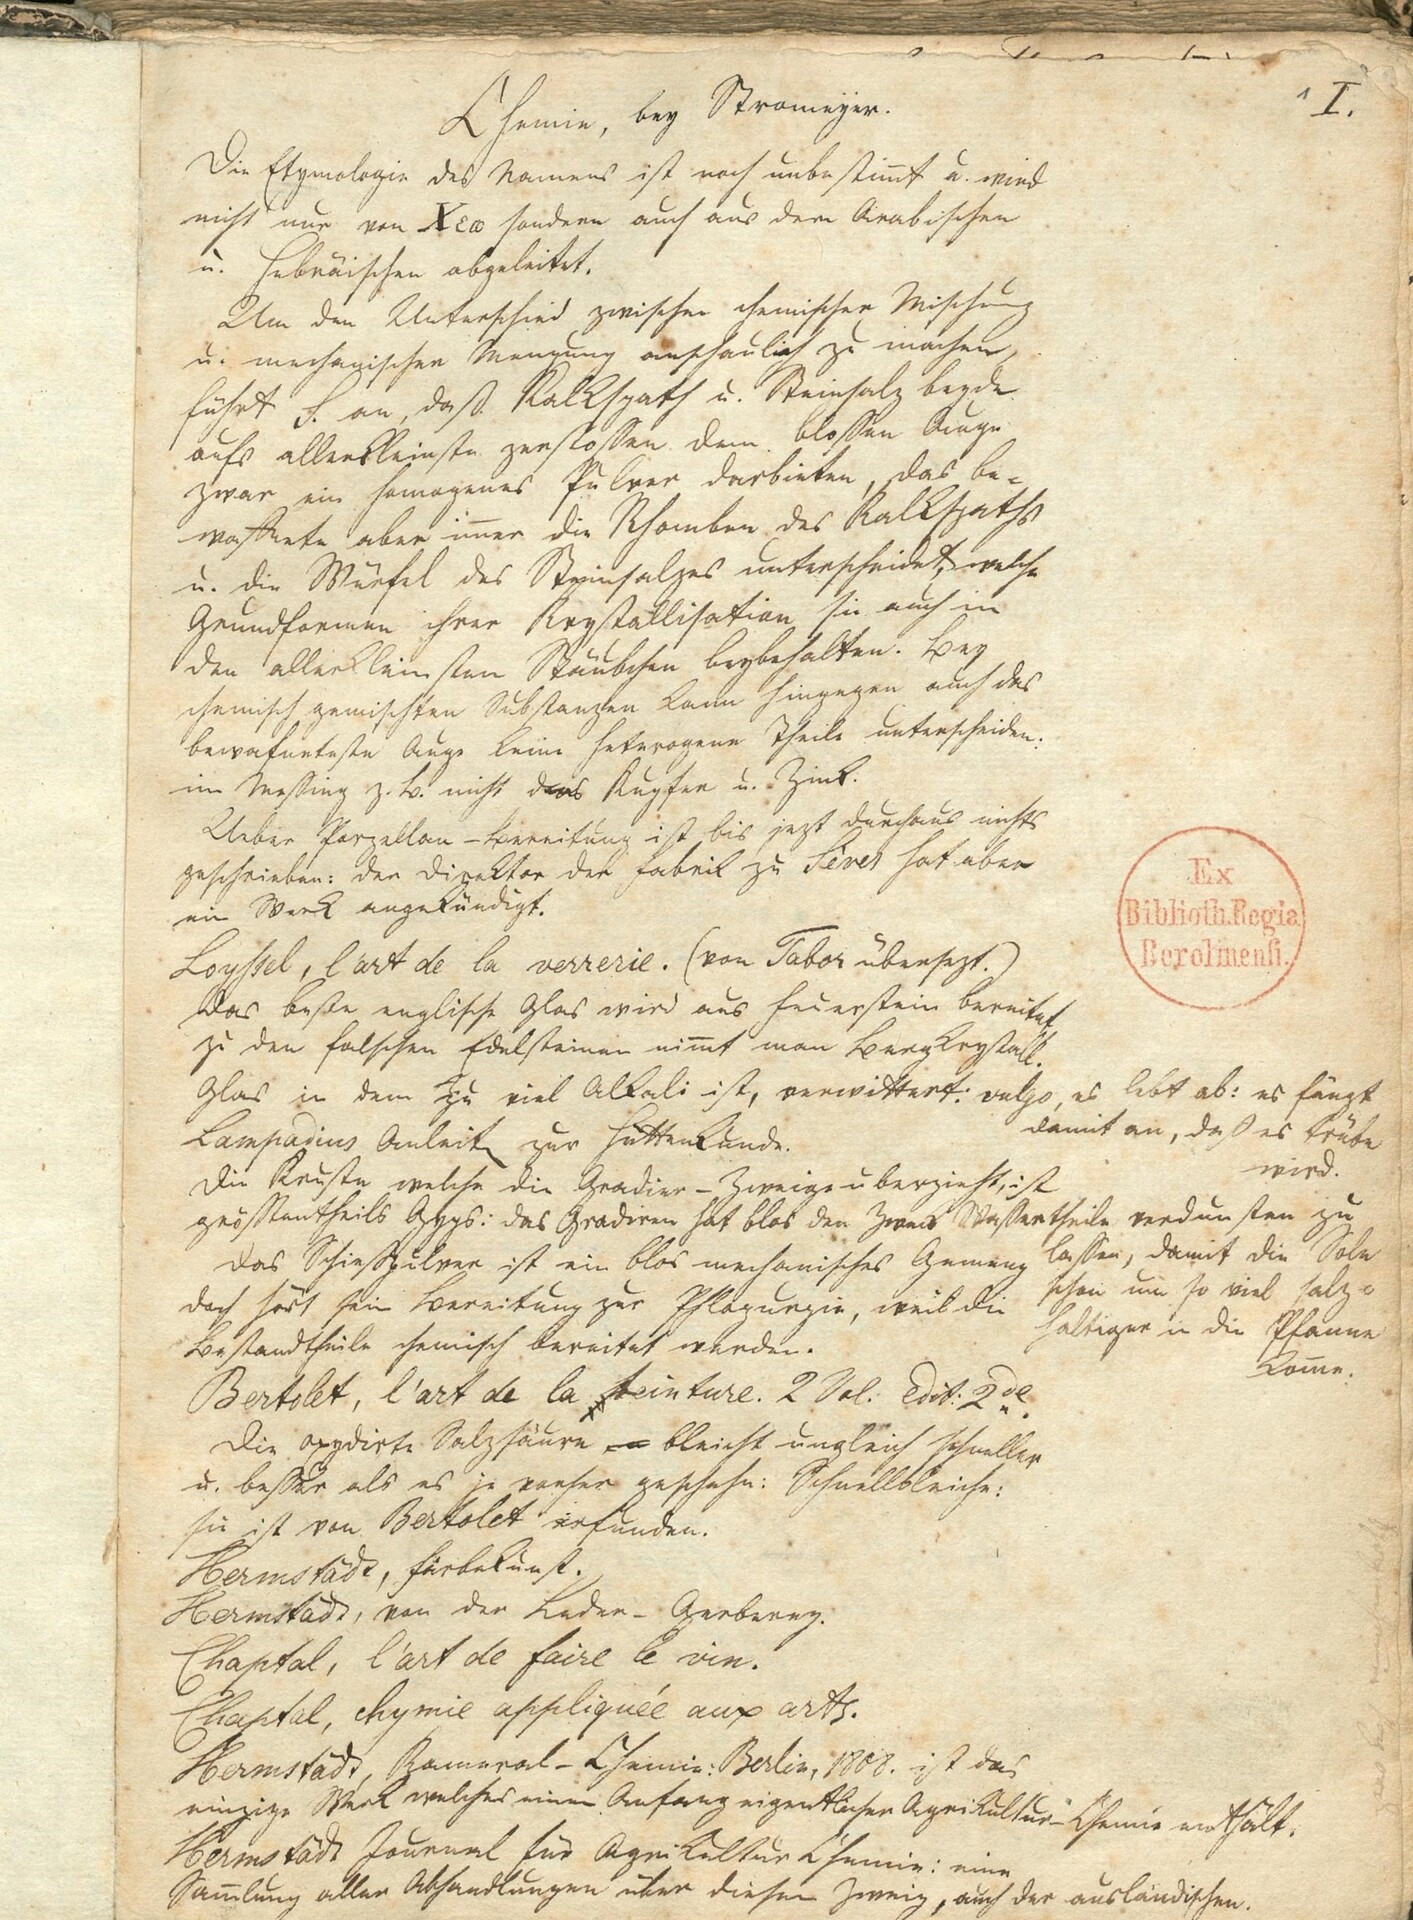 I.
Chemie, bey Stromeyer.
Die Etymologie des Namens ist noch unbestimt u. wird
nicht nur von Χεω sondern auch aus dem Arabischen
u. Hebräischen abgeleitet.
Um den Unterschied zwischen chemischer Mischung
u. mechanischer Mengung anschaulich zu machen,
führt S. an, daß Kalkspath u. Steinsalz beyde
aufs allerkleinste zerstossen dem blossen Auge
zwar ein homogenes Pulver darbieten, das be-
waffnete aber imer die Rhomben des Kalkspaths
u. die Würfel des Steinsalzes unterscheidet, welche
Grundformen ihrer Krystallisation sie auch in
den allerkleinsten Stäubchen beybehalten. Bey
chemisch gemischten Substanzen kann hingegen auch das
bewafneteste Auge keine heterogene Theile unterscheiden:
im Messing z. B. nicht das Kupfer u. Zink.
Ueber Porzellan-Bereitung ist bis jezt durchaus nichts
geschrieben: der Direktor der Fabrik zu Sèves hat aber
ein Werk angekündigt.
Loyssel, l'art de la verrerie. (von Tabor übersezt.)
Das beste englische Glas wird aus Feuerstein bereitet
zu den falschen Edelsteinen nimmt man Bergkrystall.
Glas in dem zu viel Alkali ist, verwittert: vulgo, es lebt ab: es fängt
damit an, daß es trübe
wird.
Lampadius Anleit. zur Hüttenkunde.
Die Kruste welche die Gradier-Zweige uberzieht, ist
grösstentheils Gyps: das Gradiren hat blos den Zweck Wassertheile verdunsten zu
lassen, damit die Sole
schon um so viel salz-
haltiger in die Pfanne
kome.
Das Schiesspulver ist ein blos mechanisches Gemeng
doch hört sein Bereitung zur Phlogurgie, weil die
Bestandtheile chemisch bereitet werden.
Bertolet, l'art de la teinture. 2 Vol. Edit. 2de.
Die oxydirte Salzsäure bleicht ungleich schneller
u. besser als es je vorher geschehn: Schnellbleiche:
sie ist von Bertolet erfunden.
Hermstädt, Färbekunst.
Hermstädt, von der Leder-Gerberey.
Chaptal, l'art de faire le vin.
Chaptal, chymie appliquée aux arts.
Hermstädt, Kameral-Chemie: Berlin, 1808. ist das
einzige Werk welches einen Anfang eigentlicher Agrikultur-Chemie enthält.
Hermstädt Journal für Agrikultur Chemie: eine
Samlung aller Abhandlungen über diesen Zweig, auch der ausländischen.
Ex
Biblioth. Regia
Berolinensi.